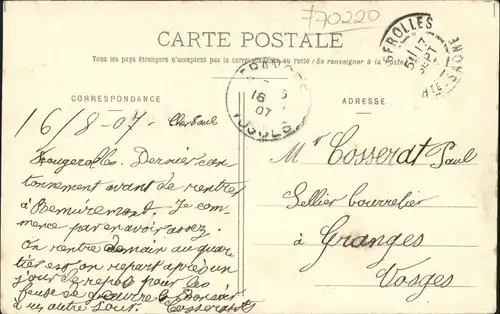 770220
CARTE POSTALE
Tous les pays étrangers n'acceptent pas la correspondance au recto (Se renseigner à la Poste)
GRANGES
16
07
VOSGES
CORRESPONDANCE
ADRESSE
16/8-07
Fougerolles. Dernier can
tonnement avant de rentrer
à Remiremont. Je com
mence par en avoir assez.
On rentre demain au quar
tier et on repart après un
jour de repos pour les
à un autre jour. Cosserat
Mr Cosserat Paul
Sellier bourrelier
à Granges
Vosges